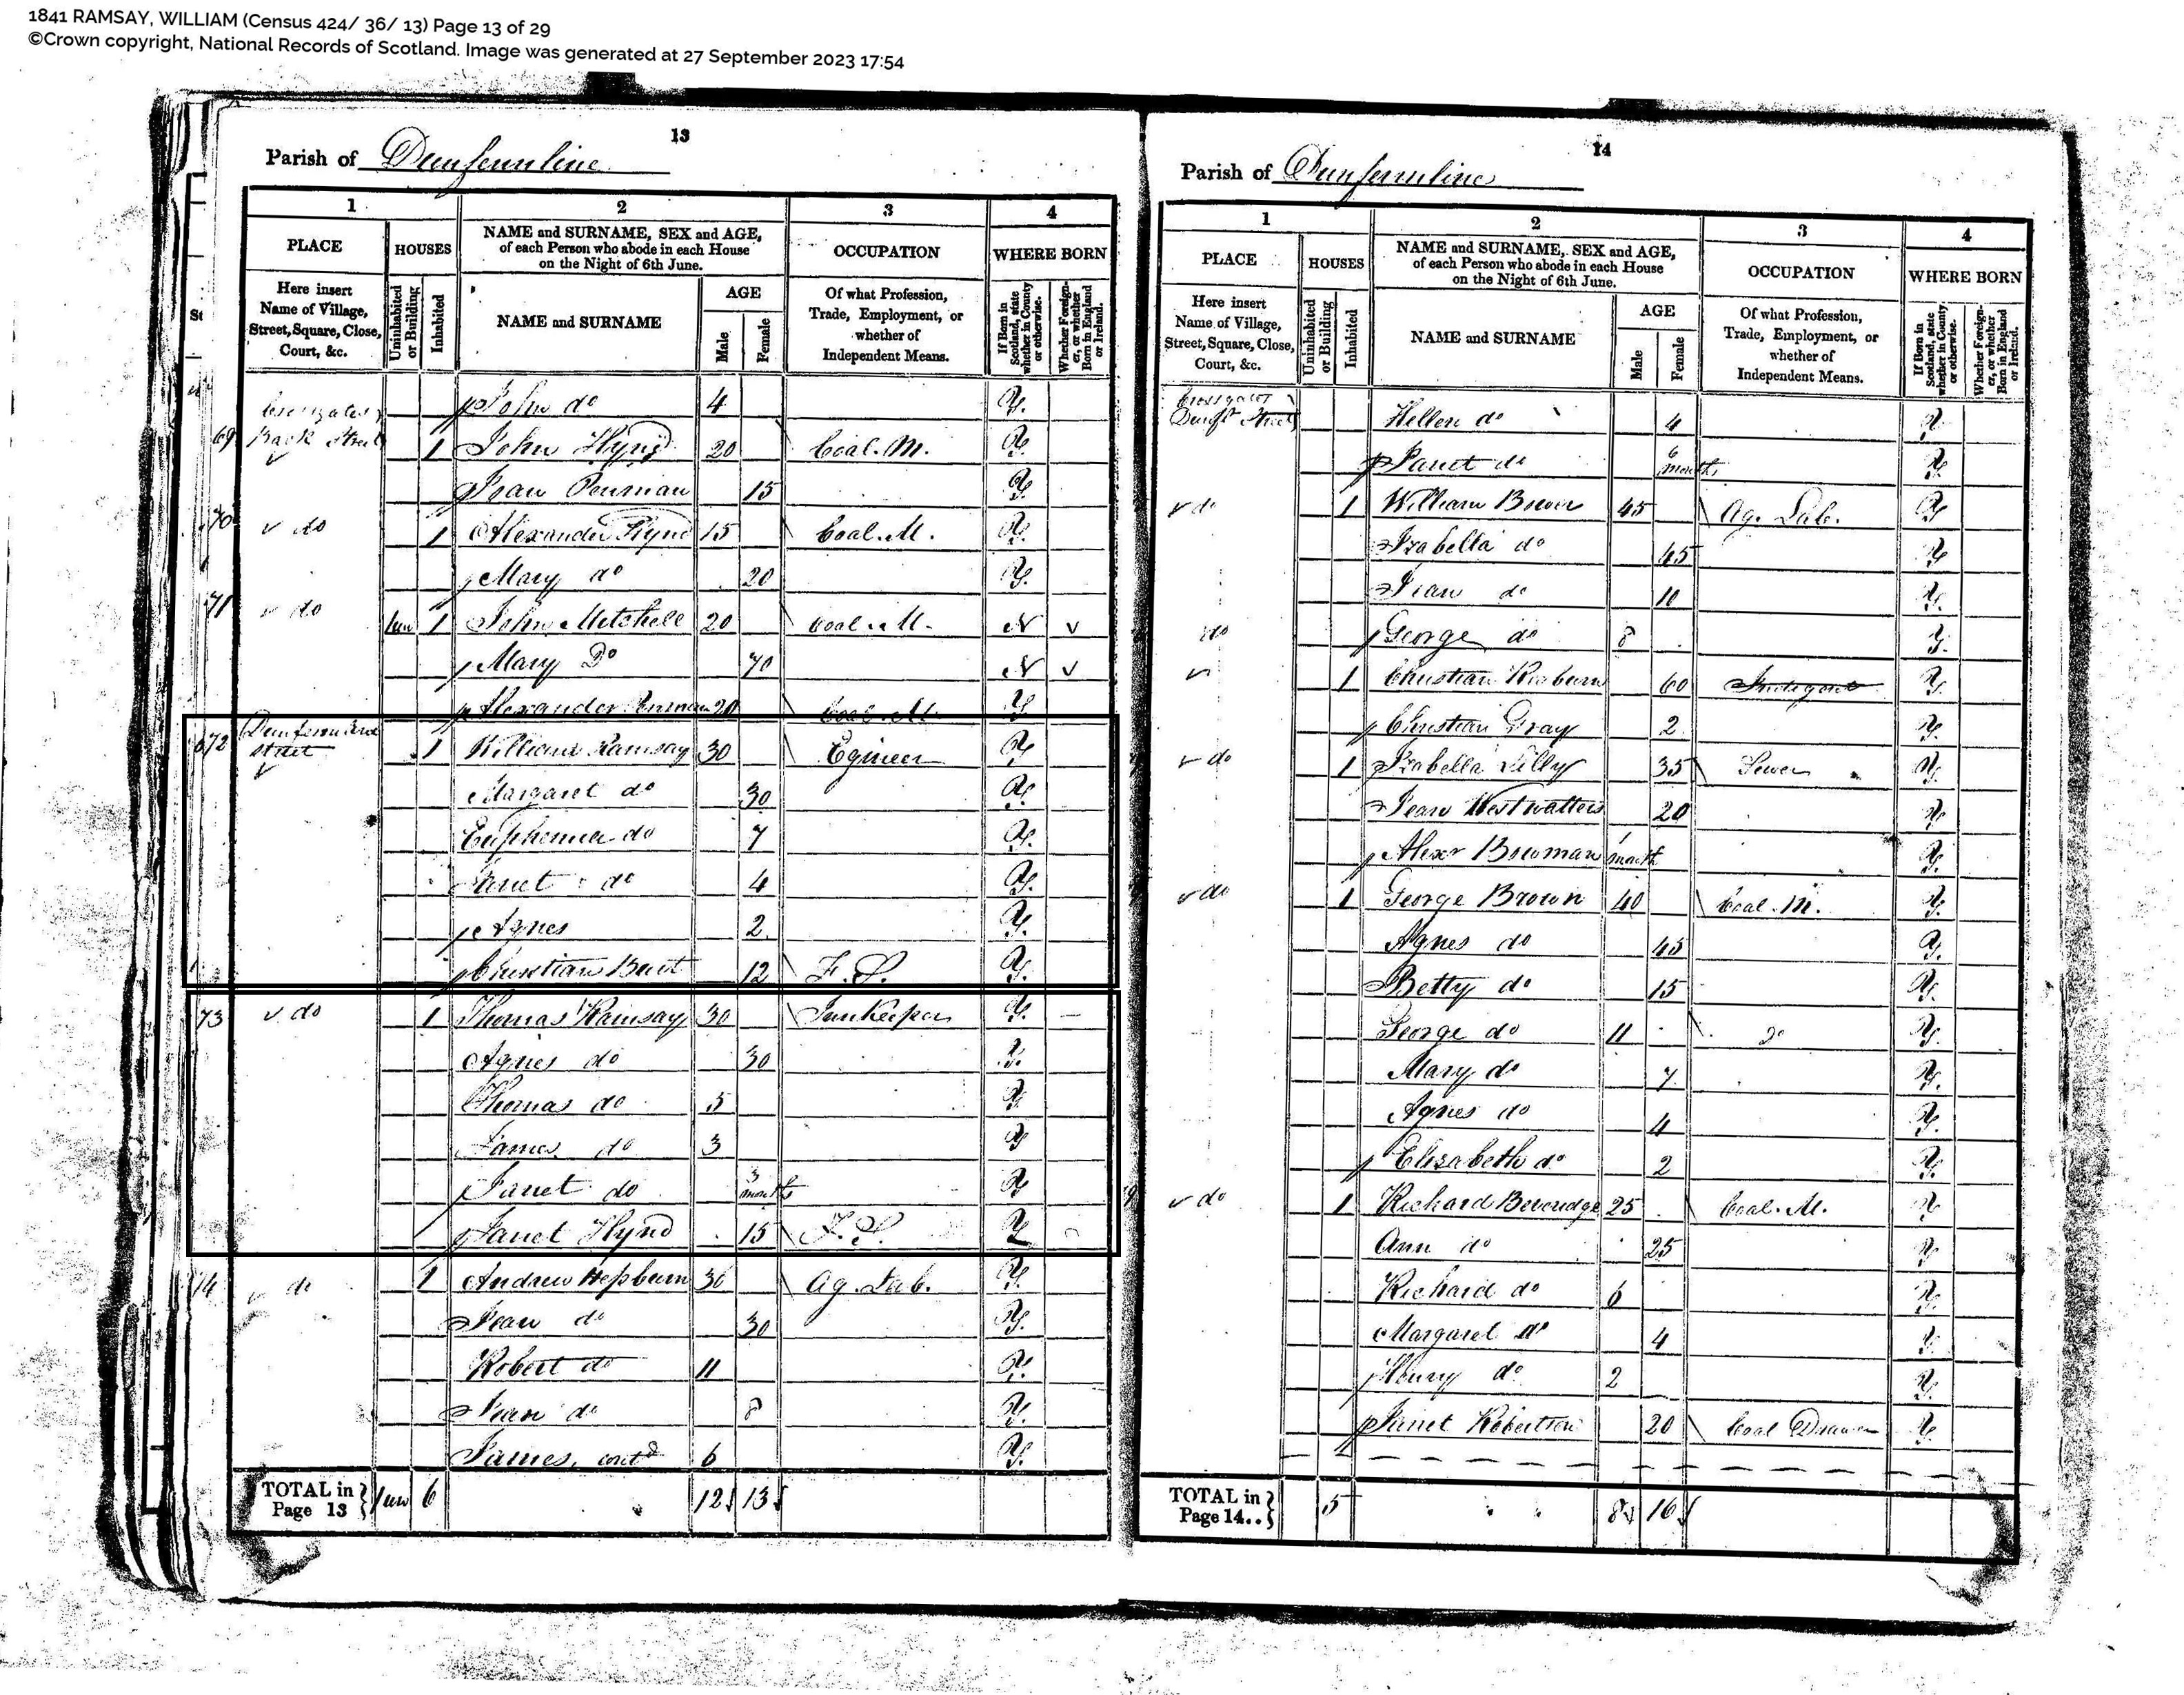 1841 RAMSAY, WILLIAM (Census 424/ 36/ 13) Page 13 of 29
©Crown copyright, National Records of Scotland. Image was generated at 27 September 2023 17:54
13
Parish of Dunfermline
1 2 3 4
PLACE HOUSES NAME and SURNAME, SEX and AGE, of each Person who abode in each House on the Night of 6th June. OCCUPATION WHERE BORN
Here insert Name of Village, Street, Square, Close, Court, &c. Uninhabited or Building Inhabited NAME and SURNAME AGE Male Female Of what Profession, Trade, Employment, or whether of Independent Means. If Born in Scotland, state whether in County or otherwise. Whether Foreigner, or whether Born in England or Ireland.
Crossgates John do 4 Y.
69 Back Street 1 John Hynd 20 Coal. M. Y.
Jean Penman 15 Y.
70 do 1 Alexander Hynd 15 Coal. M. Y.
Mary do 20 Y.
71 do 1 John Mitchell 20 Coal. M. N
Mary Do 70 N
Alexander Penman 20 Coal. M. Y
72 Dunfermline Street 1 William Ramsay 30 Egineer Y
Margaret do 30 Y.
Euphemia do 7 Y.
Janet do 4 Y.
Agnes 2 Y.
Christian Beut 12 F. S. Y.
73 do 1 Thomas Ramsay 30 InnKeeper Y.
Agnes do 30 Y.
Thomas do 5 Y
James do 3 Y
Janet do 3 months Y
Janet Hynd 15 F. S. Y
74 do 1 Andrew Hepburn 30 Ag. Lab. Y.
Jean do 30 Y.
Robert do 11 Y.
Jean do 8 Y.
James, contd 6 Y.
TOTAL in Page 13 6 12 13
14
Parish of Dunfermline
1 2 3 4
PLACE HOUSES NAME and SURNAME, SEX and AGE, of each Person who abode in each House on the Night of 6th June. OCCUPATION WHERE BORN
Here insert Name of Village, Street, Square, Close, Court, &c. Uninhabited or Building Inhabited NAME and SURNAME AGE Male Female Of what Profession, Trade, Employment, or whether of Independent Means. If Born in Scotland, state whether in County or otherwise. Whether Foreigner, or whether Born in England or Ireland.
Crossgates
Street Hellen do 4 Y.
Janet do 6 months Y.
do 1 William 45 Ag. Lab. Y
Izabella do 45 Y
Jean do 10 Y.
do George do 8 Y.
1 Christian 60 Y.
Christian Gray 2 Y.
do 1 Izabella Lilly 35 Sewer Y.
Jean Westwatters 20 Y.
Alexr Bowman 1 month Y.
do 1 George Brown 40 Coal. M. Y.
Agnes do 45 Y.
Betty do 15 Y.
George do 11 do Y.
Mary do 7 Y.
Agnes do 4 Y.
Elizabeth do 2 Y.
do 1 Richard Beveridge 25 Coal. M. Y
Ann do 25 Y
Richard do 6 Y.
Margaret do 4 Y.
Henry do 2 Y.
Janet Robertson 20 Coal Drawer Y.
TOTAL in Page 14.. 5 8 16